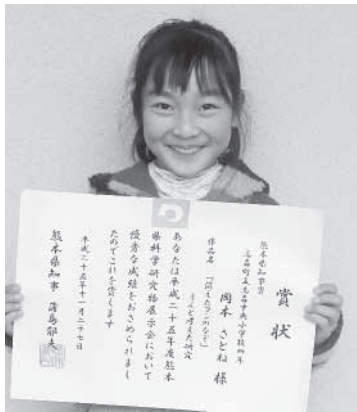 賞状
熊本県知事賞
益城町立益城中央小学校四年
岡本 さとね 様
作品名 「消えたヨウ素のなぞ」
あなたは平成二十五年度熊本
県科学研究物展示会において
優秀な成績をおさめられまし
たのでこれを賞します
平成二十五年十一月二十七日
熊本県知事 蒲島郁夫